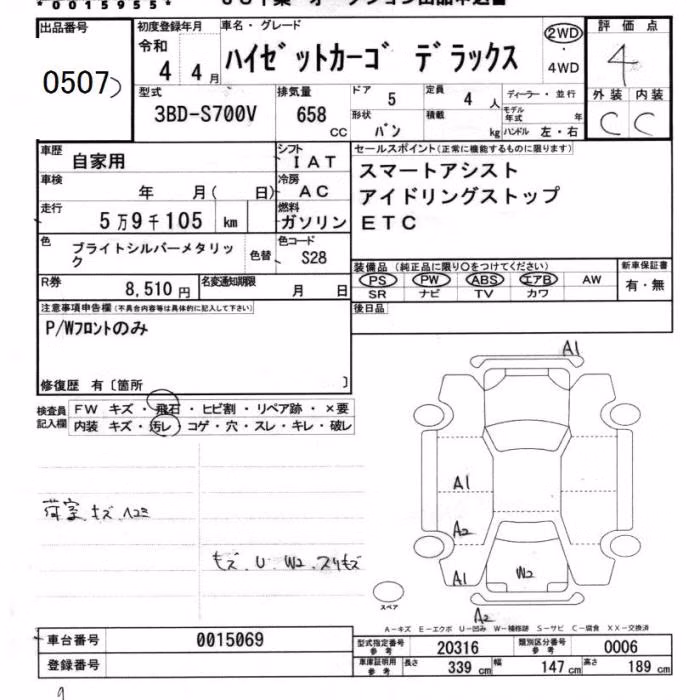 *0015955*
出品番号
0507
初度登録年月
令和
4 4月
車名・グレード
ハイゼットカーゴ デラックス
2WD
・
4WD
評価点
4
外装 内装
C C
型式
3BD-S700V
排気量
658
CC
ドア
5
定員
4 人
ディーラー・並行
形状
バン
積載
kg
モデル年式 年
ハンドル 左・右
車歴
自家用
車検
年 月( 日)
走行
5万9千105 km
シフト
IAT
冷房
AC
燃料
ガソリン
セールスポイント(正常に機能するものに限ります)
スマートアシスト
アイドリングストップ
ETC
色
ブライトシルバーメタリック
色替
色コード
S28
R券
8,510 円
名変通知期限
月 日
装備品 (純正品に限り○をつけてください)
PS PW ABS エアB AW
SR ナビ TV カワ
新車保証書
有・無
後日品
注意事項申告欄(不具合内容等は具体的に記入して下さい)
P/Wフロントのみ
修復歴 有〔箇所 〕
検査員記入欄
FW キズ・飛石・ヒビ割・リペア跡・×要
内装 キズ・汚レ・コゲ・穴・スレ・キレ・破レ
荷室 キズ ヘコミ
キズ.U.W2.スリキズ
A1
A1
A2
A1
W2
A2
スペア
A-キズ E-エクボ U-凹み W-補修跡 S-サビ C-腐食 XX-交換済
車台番号
0015069
登録番号
型式指定番号 参考
20316
類別区分番号 参考
0006
車庫証明用 参考
長さ 339 cm
幅 147 cm
高さ 189 cm